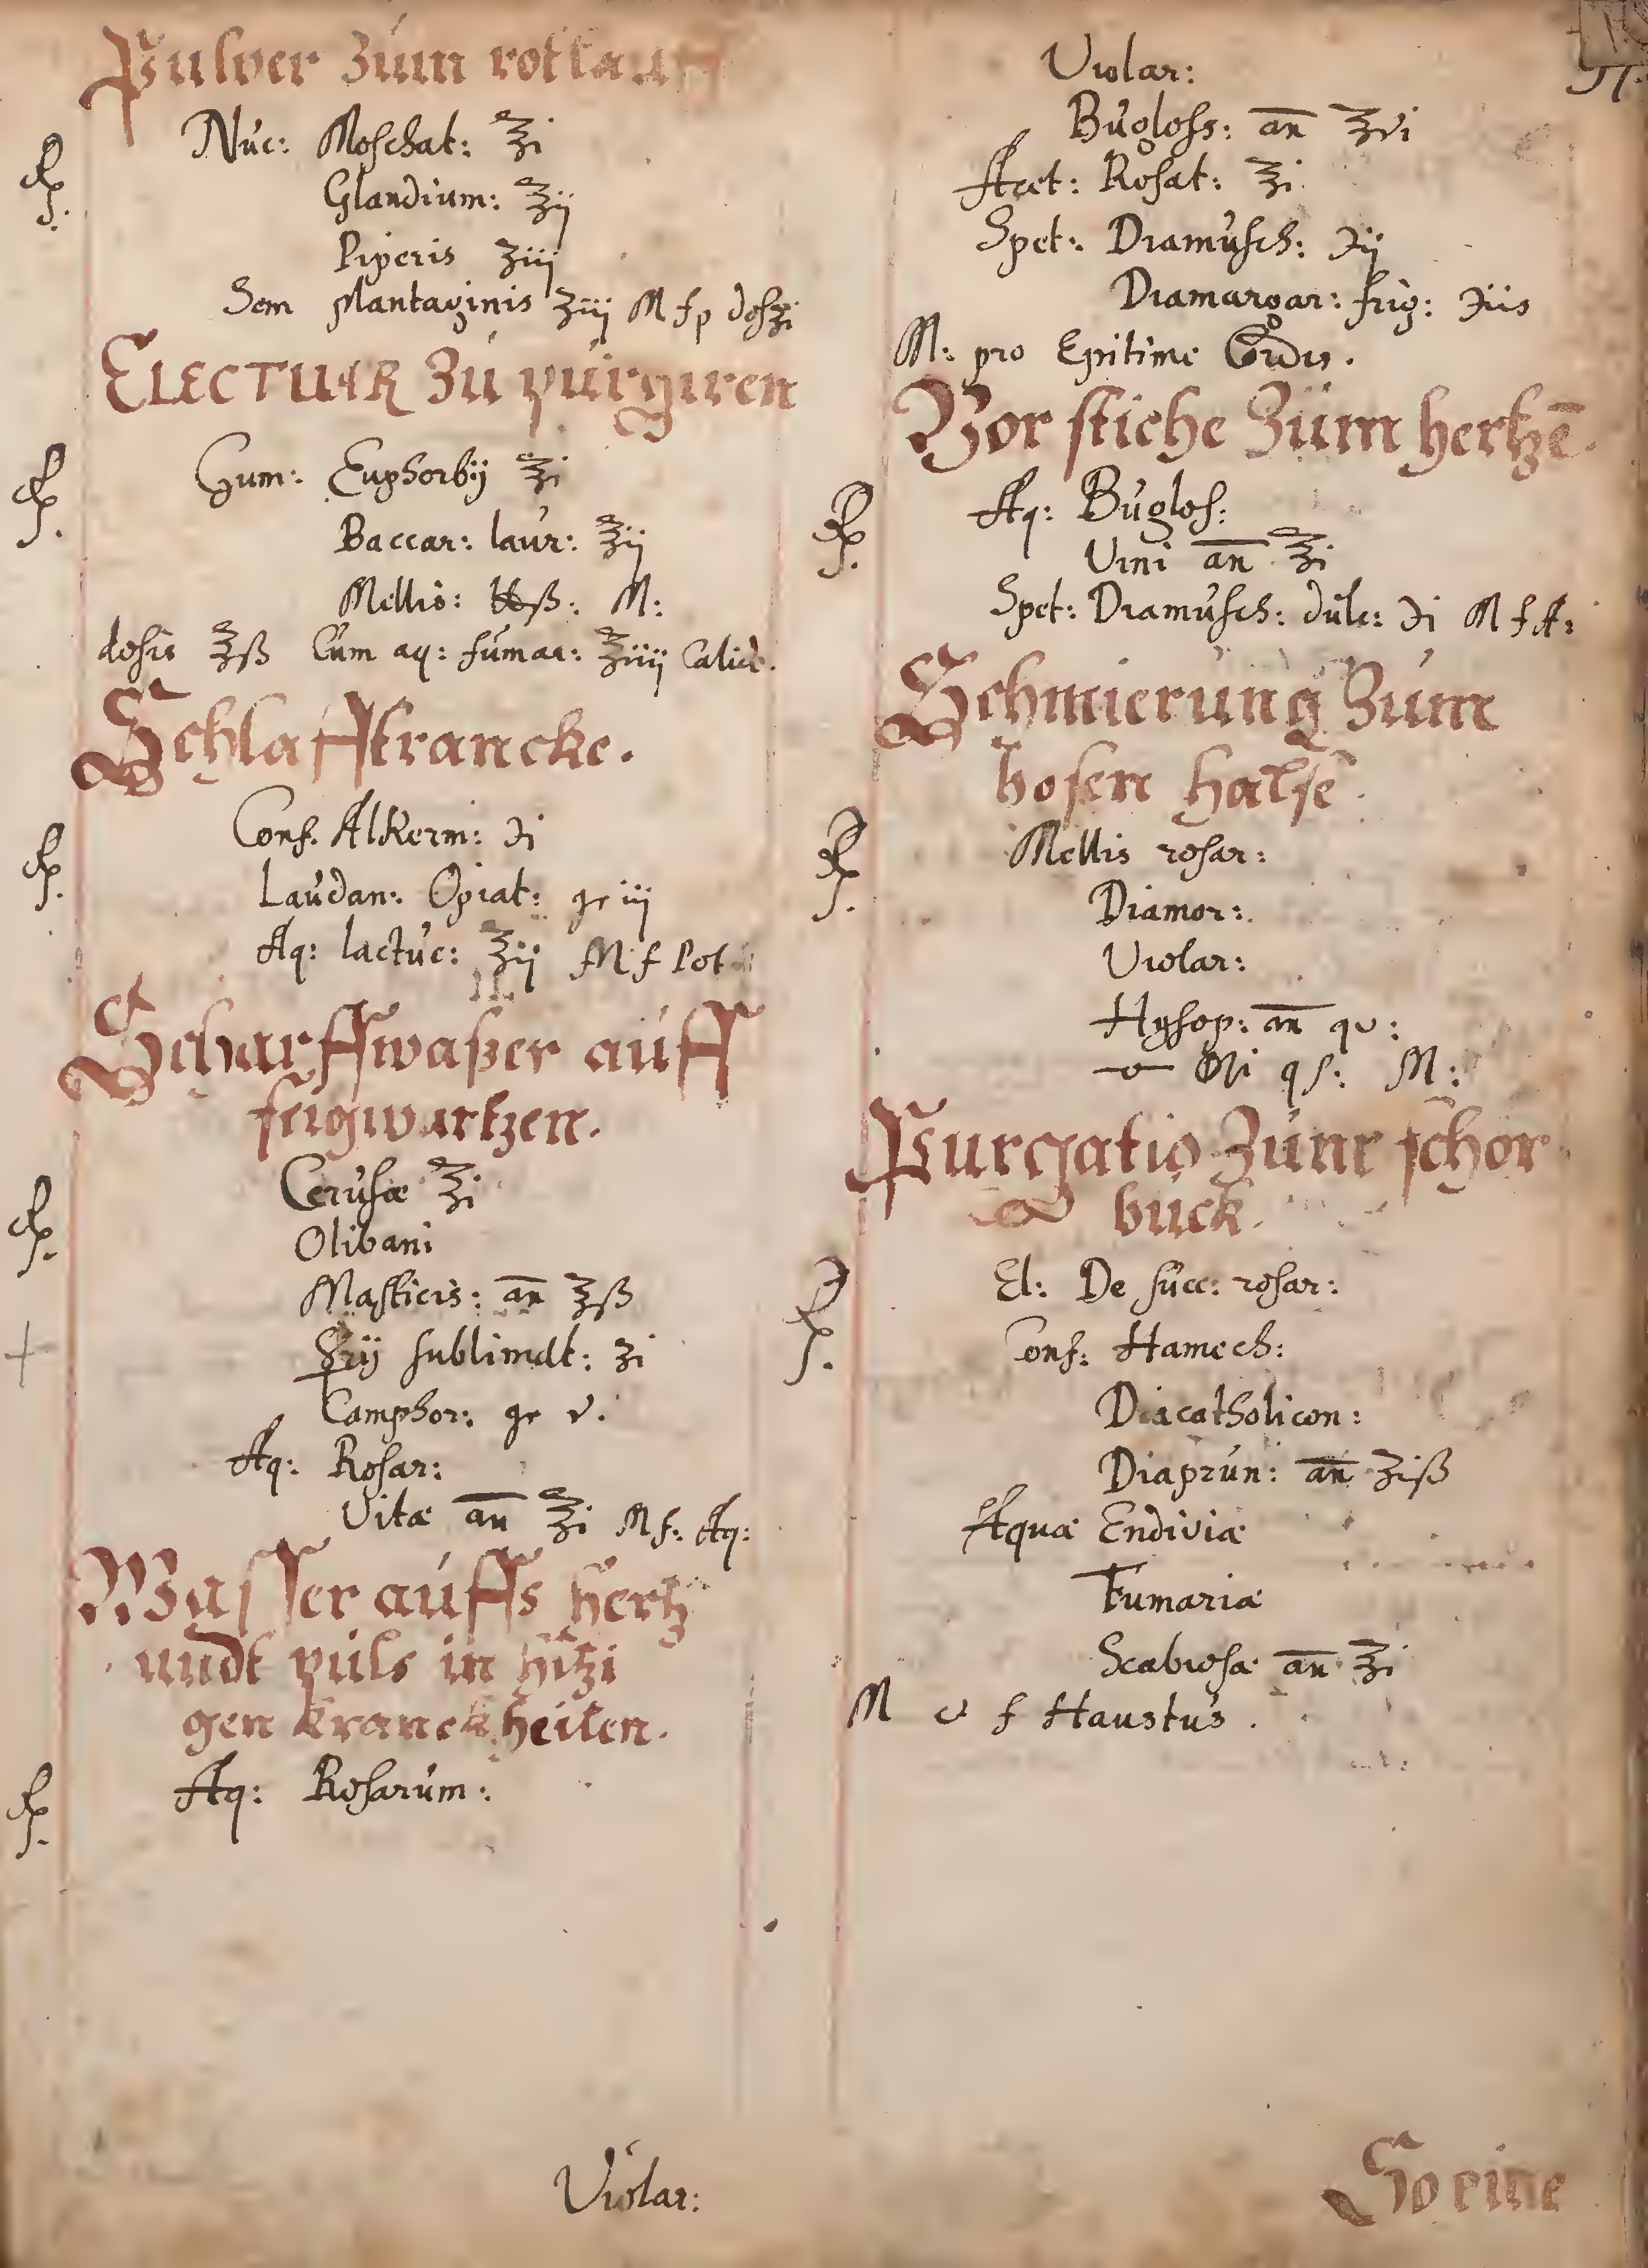 Pulver zum rotlauff
Nuc: Moschat: ℥i
Glandium: ℥ij
Piperis ʒiij
Sem plantaginis ʒiij M f p dos ʒi
ELECTUAR zu purgiren
Gum: Euphorbij ℥i
Baccar: laur: ℥ij
Mellis: ℔ß: M:
dosis ℥ß Cum aq: fumar: ℥iiij Calide.
Schlafftrancke.
Conf. Alkerm: ℈i
Laudan: Opiat: gr iij
Aq: lactuc: ℥ij M f Pot
Scharffwaßer auff
feigwartzen.
Cerusæ ℥i
Olibani
Masticis: an ʒß
☿rij sublimat: ʒi
Camphor: gr v.
Aq: Rosar:
Vitæ an ℥i M f: Aq:
Wasser auffs hertz
undt puls in hitzi
gen kranckheiten.
Aq: Rosarum:
Violar:
Violar:
Bugloss: an ℥vi
Acet: Rosat: ℥i
Spet: Diamusch: ℈ij
Diamargar: frig: ℈iis
M: pro Epitime Cordis.
Vor stiche zum hertzē.
Aq: Buglos:
Vini an ℥i
Spet: Diamusch: dulc: ℈i M f A:
Schmierung zum
bosen halse.
Mellis rosar:
Diamor:
Violar:
Hysop: an qv:
qs: M:
Purgatio zum schor
buck.
El: De succ: rosar:
Conf: Hamech:
Diacatholicon:
Diaprun: an ʒiß
Aquæ Endiviæ
Fumariæ
Scabiosæ an ℥i
M f Haustus.
So eine